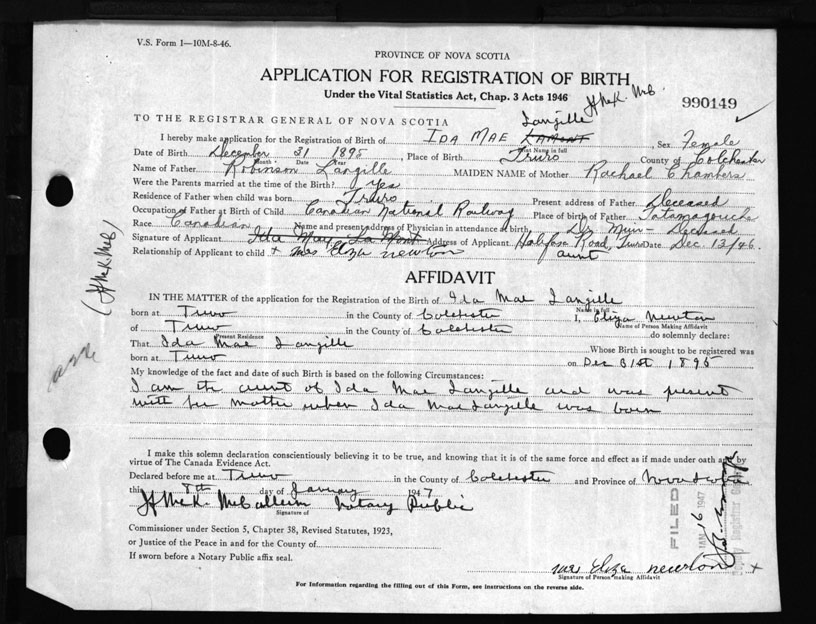 V.S. Form 1—10M-8-46.
PROVINCE OF NOVA SCOTIA
APPLICATION FOR REGISTRATION OF BIRTH
Under the Vital Statistics Act, Chap. 3 Acts 1946
990149
TO THE REGISTRAR GENERAL OF NOVA SCOTIA
Langille
I hereby make application for the Registration of Birth of IDA MAE LAMONT Sex Female
Last Name in full
Date of Birth December 31 1895, Place of Birth Truro County of Colchester
Month Date Year
Name of Father Robinson Langille MAIDEN NAME of Mother Rachael Chambers
Were the Parents married at the time of Birth? Yes
Residence of Father when child was born Truro Present address of Father Deceased
Occupation of Father at Birth of Child Canadian National Railway Place of birth of Father Tatamagouche
Race Canadian Name and present address of Physician in attendance at birth Dr Muir - Deceased
Signature of Applicant Ida May La Mont Address of Applicant Halifax Road, Truro Date Dec. 13/46.
Relationship of Applicant to child x Mrs Eliza Newton aunt
AFFIDAVIT
IN THE MATTER of the application for the Registration of the Birth of Ida Mae Langille
Name in full
born at Truro in the County of Colchester I, Eliza Newton
Name of Person Making Affidavit
of Truro in the County of Colchester do solemnly declare:
Present Residence
That Ida Mae Langille Whose Birth is sought to be registered was
born at Truro on Dec 31st 1895
My knowledge of the fact and date of such Birth is based on the following Circumstances:
I am the aunt of Ida Mae Langille and was present
with her mother when Ida Mae Langille was born
I make this solemn declaration conscientiously believing it to be true, and knowing that it is of the same force and effect as if made under oath and by
virtue of The Canada Evidence Act.
Declared before me at Truro in the County of Colchester and Province of Nova Scotia
this 8th day of January 1947
H McK. McCallum Notary Public
Signature of
FILED
JAN 16 1947
Commissioner under Section 5, Chapter 38, Revised Statutes, 1923,
or Justice of the Peace in and for the County of
If sworn before a Notary Public affix seal.
Mrs Eliza Newton x
Signature of Person making Affidavit
For Information regarding the filling out of this Form, see instructions on the reverse side.